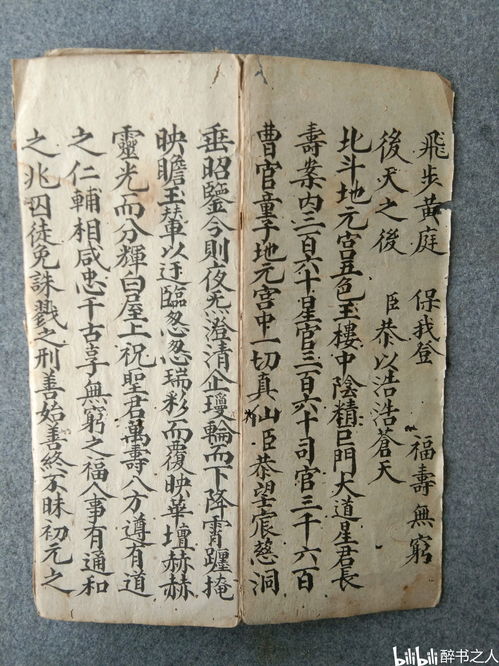 飛步黄庭　保我登　福壽無窮
後天之後　臣恭以浩浩蒼天
北斗地元宫丑色玉樓中陰精巨門大道星君長
壽案内二百六十星官三百六十司官三千六百
曹官童子地元宫中一切真仙臣恭望宸慈洞
垂昭鑒今則夜炁澄清企瓊輪而下降霄躔掩
映瞻玉輦以迂臨忽忽瑞彩而覆映華壇赫赫
靈光而分輝曰屋上祝聖君萬壽八方遵有道
之仁輔相咸忠千古享無窮之福人事有通和
之兆囚徒免誅戮之刑善始善終不昧初元之
bilibili 醉书之人